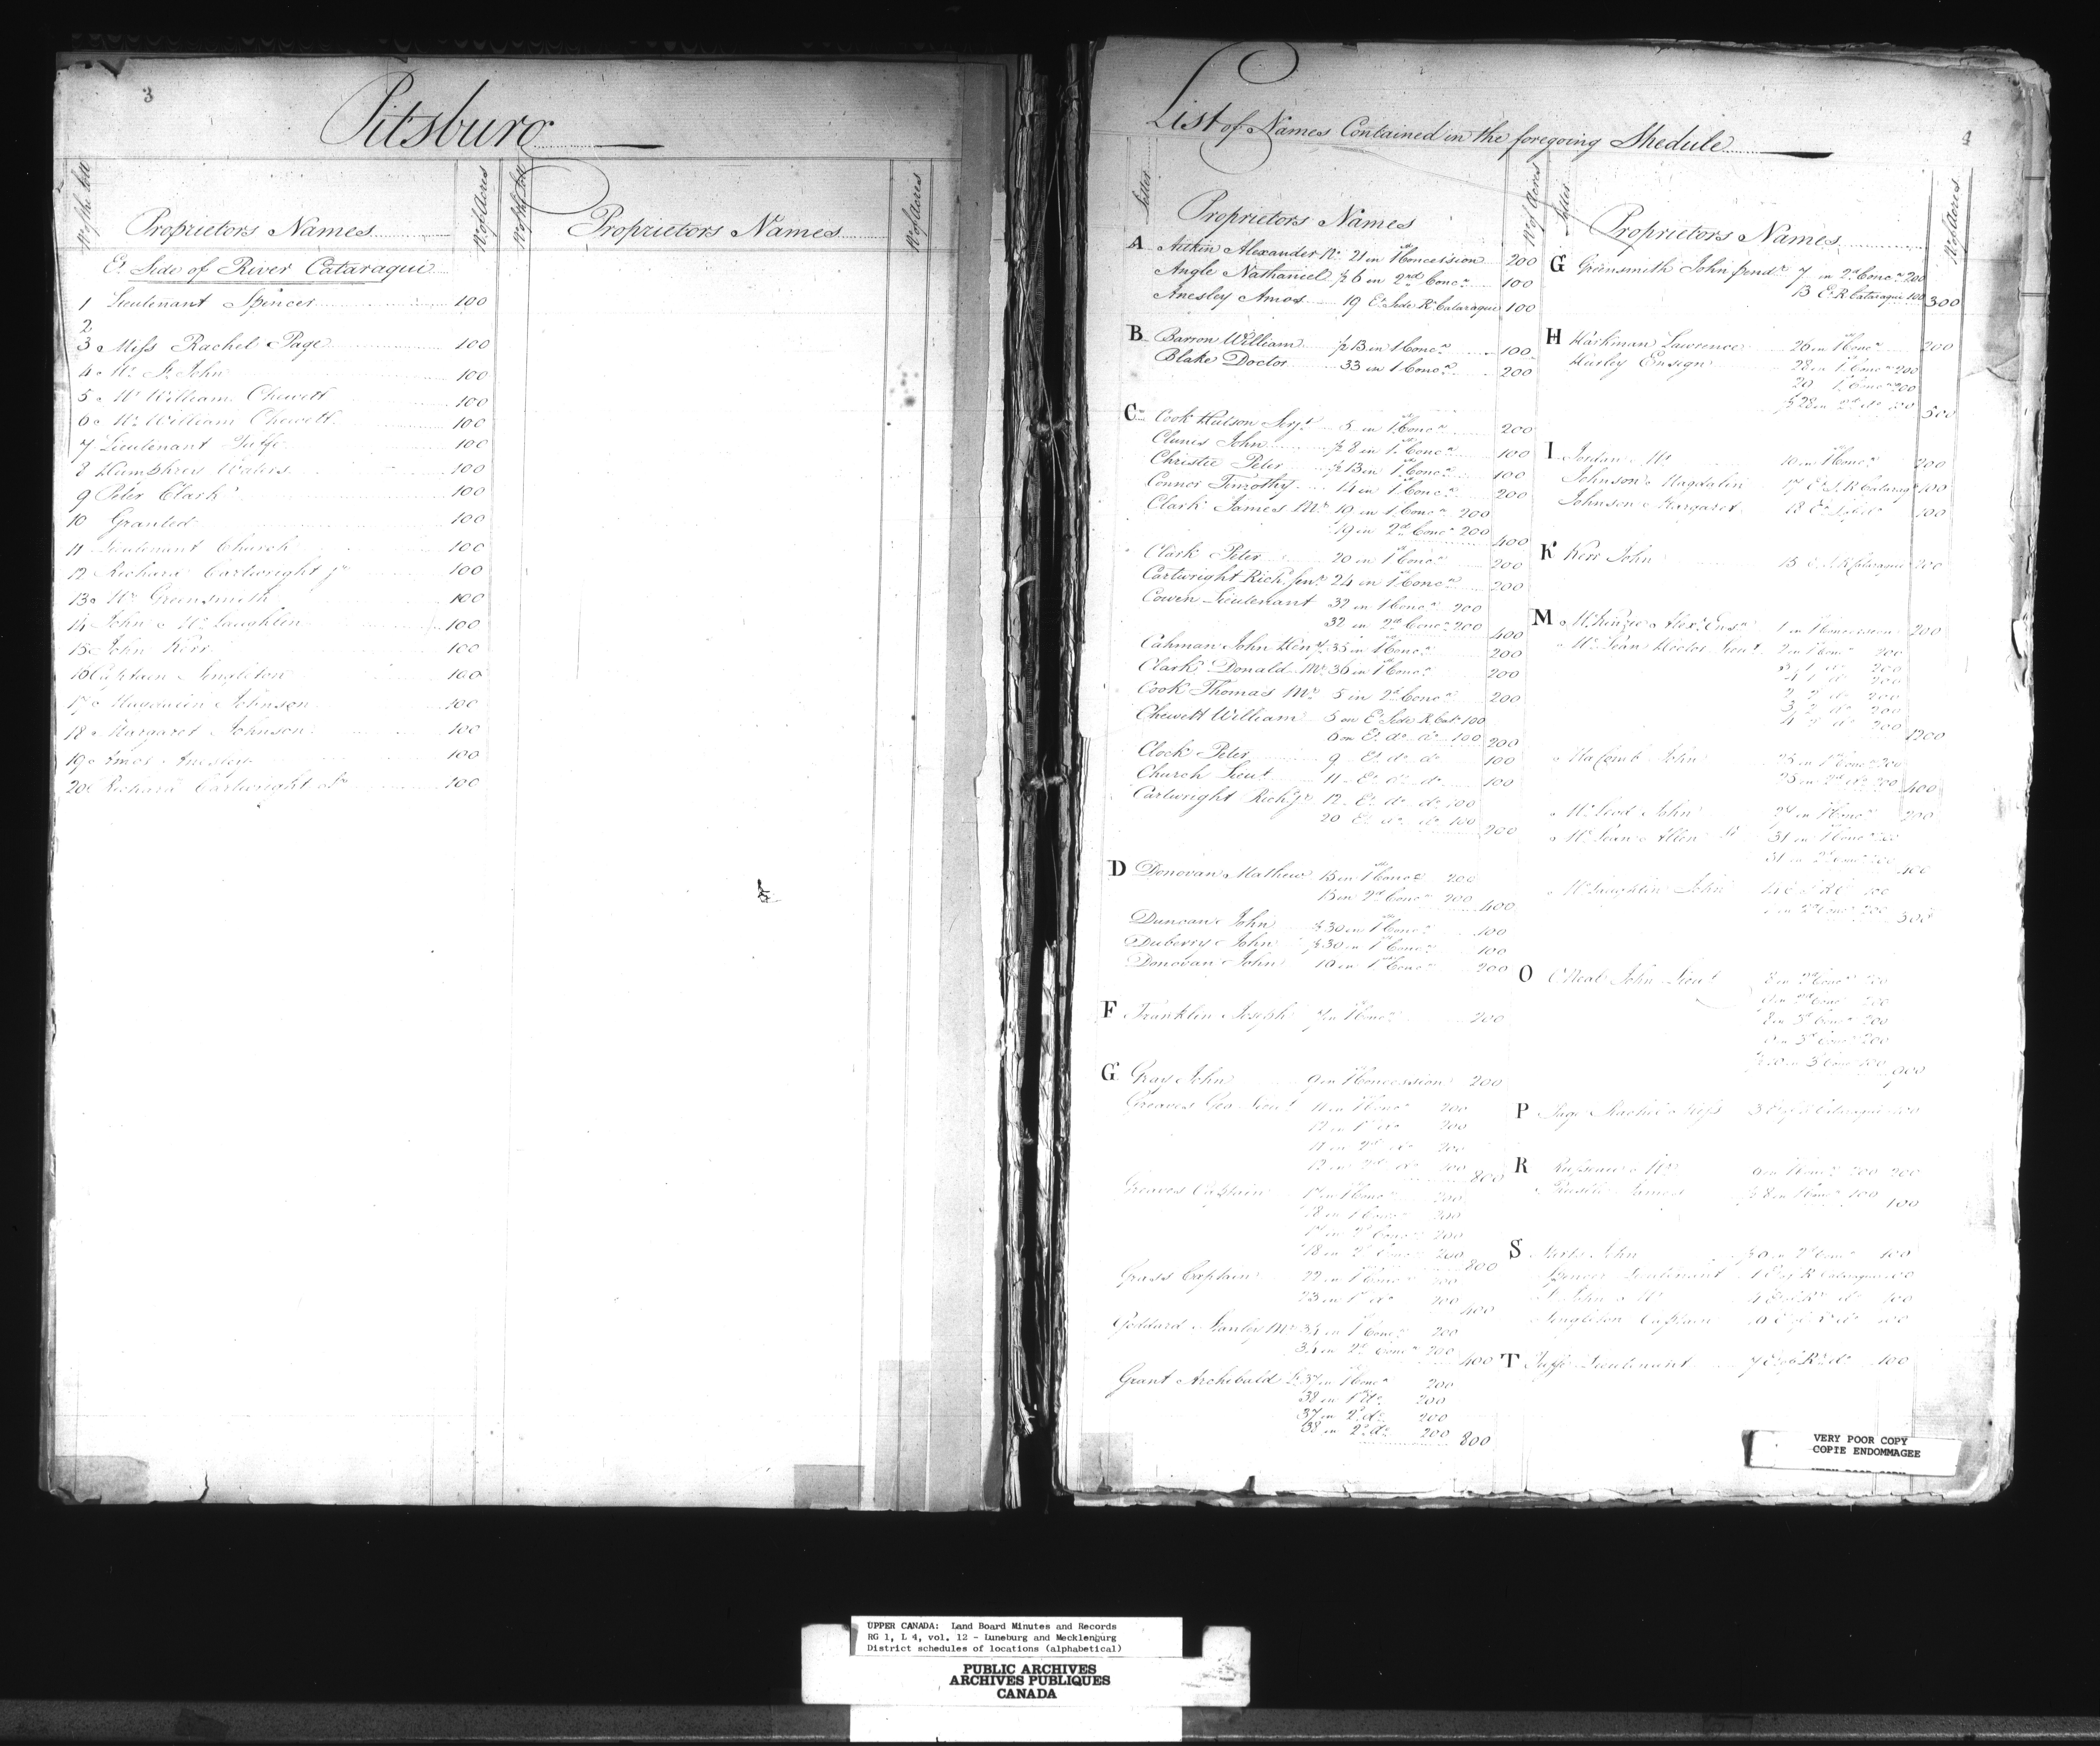 3
Pitsburg
No of the Lott
Proprietors Names
No of Acres
No of the Lott
Proprietors Names
No of Acres
Et Side of River Cataraqui
1 Lieutenant Spencer 100
2
3 Miss Rachel Page 100
4 Mr St John 100
5 Mr William Chewett 100
6 Mr William Chewett 100
7 Lieutenant Tuffe 100
8 Humphrey Waters 100
9 Peter Clark 100
10 Granted 100
11 Lieutenant Church 100
12 Richard Cartwright Jr 100
13 Mr Greensmith 100
14 John McLaughlin 100
15 John Kerr 100
16 Captain Singleton 100
17 Magdalen Johnson 100
18 Margaret Johnson 100
19 Amos Anesley 100
20 Richard Cartwright 100
List of Names Contained in the foregoing Shedule
Letter
Proprietors Names
No of Acres
A Aitkin Alexander No 21 in 1st Concession 200
Angle Nathaniel ½ 6 in 2nd Concn 100
Anesley Amos 19 Et Side R Cataraqui 100
B Barron William ½ 13 in 1st Concn 100
Blake Doctor 33 in 1 Concn 200
C Cook Hutson Serjt 5 in 1st Concn 200
Clunes John ½ 8 in 1st Concn 100
Christie Peter ½ 13 in 1st Concn 100
Connor Timothy 14 in 1st Concn 200
Clark James Mr 19 in 1st Concn 200
19 in 2d Concn 200
400
Clark Peter 20 in 1st Concn 200
Cartwright Richd Senr 24 in 1st Concn 200
Cowen Lieutenant 32 in 1st Concn 200
32 in 2d Concn 200
400
Cahman John Heny 35 in 1st Concn 200
Clark Donald Mc 36 in 1st Concn 200
Cook Thomas Mr 5 in 2d Concn 200
Chewett William 5 on Et Side R Cat 100
6 on Et do do 100 200
Clock Peter 9 Et do do 100
Church Lieut 11 Et do do 100
Cartwright Richd Jr 12 Et do do 100
20 Et do do 100
200
D Donovan Mathew 15 in 1st Concn 200
15 in 2d Concn 200
400
Duncan John ½ 30 in 1st Concn 100
Duberry John ½ 30 in 1st Concn 100
Donovan John 10 in 1st Concn 200
F Franklin Joseph 7 in 1st Concn 200
G Gray John 9 in 1st Concession 200
Greaves Geo Lieut 11 in 1st Concn 200
12 in 1st do 200
11 in 2d do 200
12 in 2d do 200
800
Greaves Captain 17 in 1st Concn 200
18 in 1st Concn 200
17 in 2d Concn 200
18 in 2d Concn 200
800
Grass Captain 22 in 1st Concn 200
23 in 1st do 200
400
Goddard Stanley Mr 34 in 1st Concn 200
34 in 2d Concn 200
400
Grant Archibald 37 in 1st Concn 200
38 in 1st do 200
37 in 2d do 200
38 in 2d do 200
800
Letter
Proprietors Names
No of Acres
G Greensmith John 7 in 2d Concn 200
13 Et R Cataraqui 100
300
H Harkman Lawrence 26 in 1st Concn 200
Hurley Ensign 28 in 1st Concn 200
29 1st Concn 200
½ 28 in 2d do 100
500
I Jordan Mr 10 in 1st Concn 200
Johnson Magdalin 17 Et S R Cataraqi 100
Johnson Margaret 18 100
K Kerr John 15 Et S R Cataraqui
M McKinzie Alexr Ensn 1 in 1st Concession 200
McLean Hector Lieut 2 in 1st Concn 200
3 1 do 200
4 1 do 200
2 2 do 200
3 2 do 200
4 2 do 200
1200
Macomb John 25 in 1st Concn 200
25 in 2d do 200
400
McLeod John 27 in 1st Concn 200
McLean Allen 31 in 1st Concn 200
31 in 2d Concn 200
400
McLaughlin John 14 100
in 2d Concn 200
300
O O'Neal John Lieut 8 in 2d Concn 200
9 in 2d Concn 200
8 in 3d Concn 200
9 in 3d Concn 200
½ 10 in 3d Concn 100
900
P Page Rachel Miss 3 Cataraqui 100
R Mr 6 in 1st Concn 200 200
James ½ 8 in 1st Concn 100 100
S John 2d Concn 100
Spencer Lieutenant 1 Et of R Cataraqui 100
St John Mr 4 100
Singleton Captain 100
T Tuffe Lieutenant 7 Et of R do 100
VERY POOR COPY
COPIE ENDOMMAGEE
UPPER CANADA: Land Board Minutes and Records
RG 1, L 4, vol. 12 - Luneburg and Mecklenburg
District schedules of locations (alphabetical)
PUBLIC ARCHIVES
ARCHIVES PUBLIQUES
CANADA